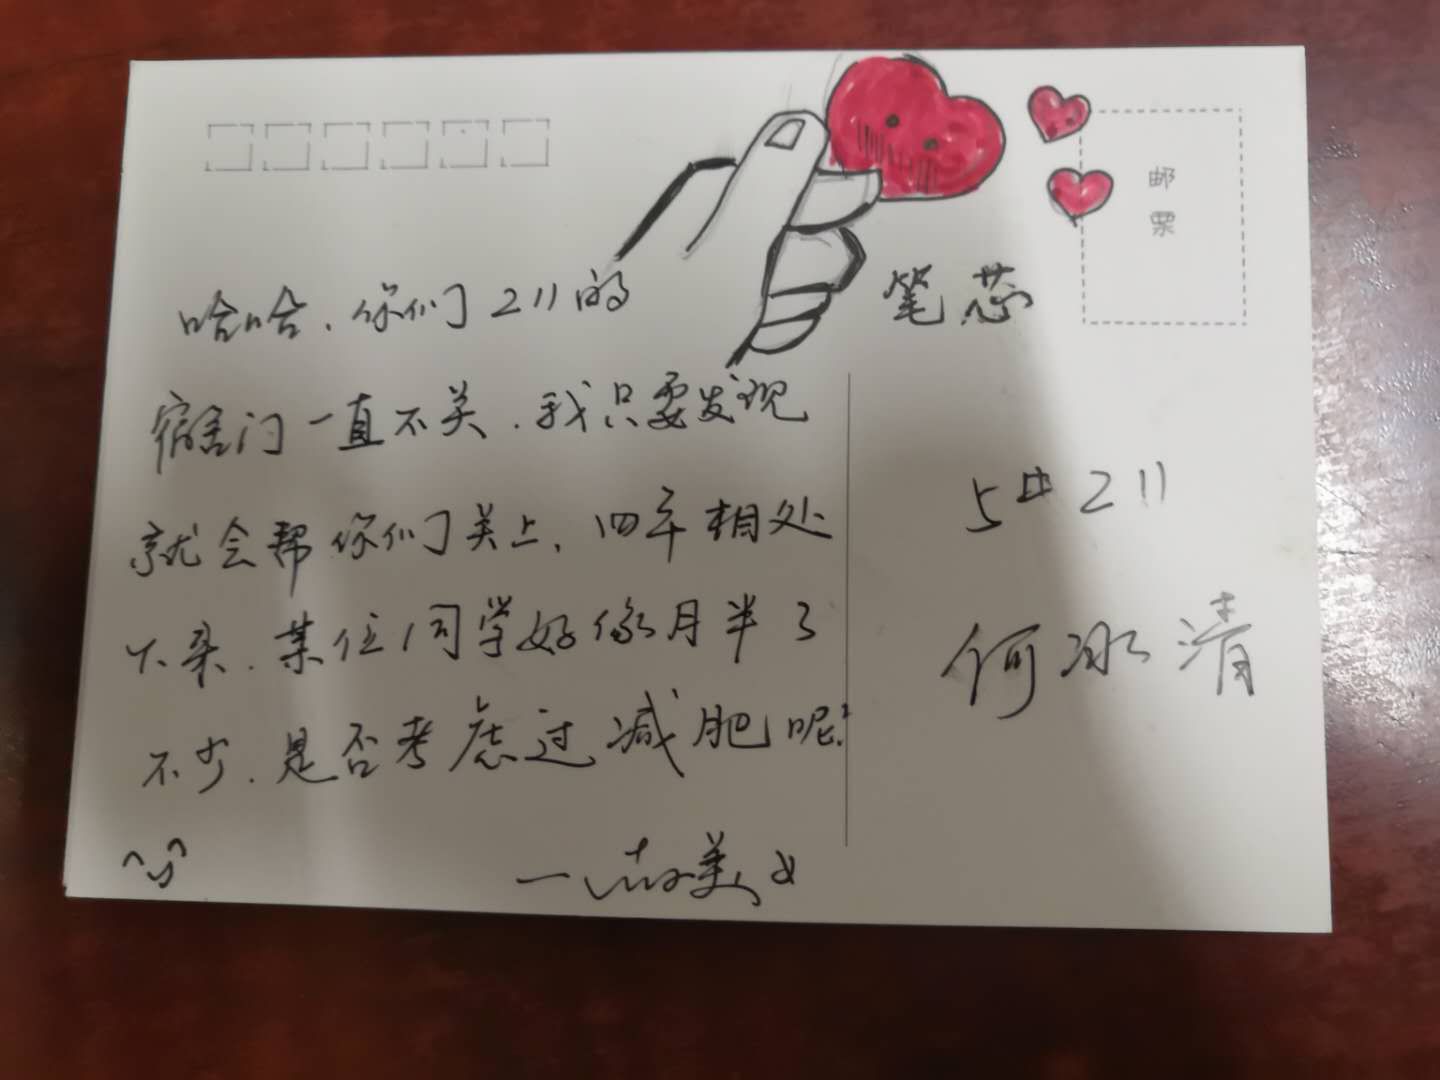 邮
票
笔芯
哈哈，你们211的
宿舍门一直不关，我只要发现
就会帮你们关上，四年相处
下来，某位同学好像月半了
不少，是否考虑过减肥呢？
5中211
何冰清